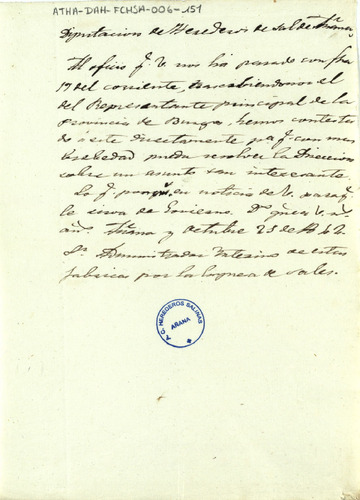 ATHA-DAH-FCHSA-006-151
Diputacion de Herederos de Sal de Añana
Al oficio q.e V. nos ha pasado con fha
19 del corriente transcribiendonos el
del Representante principal de la
provincia de Burgos hemos contestado
á este directamente pa q.e con mas
brebedad pueda resolver la Direccion
sobre un asunto tan interesante
Lo q.e en noticia de V. para q.e
le sirva de Govierno. D.s gue á V. m.s
a.s Añana y Octubre 23 de 1842
S.r Administrador Interino de estas
fabricas por la Empresa de Sales.
A. C. HEREDEROS SALINAS
AÑANA